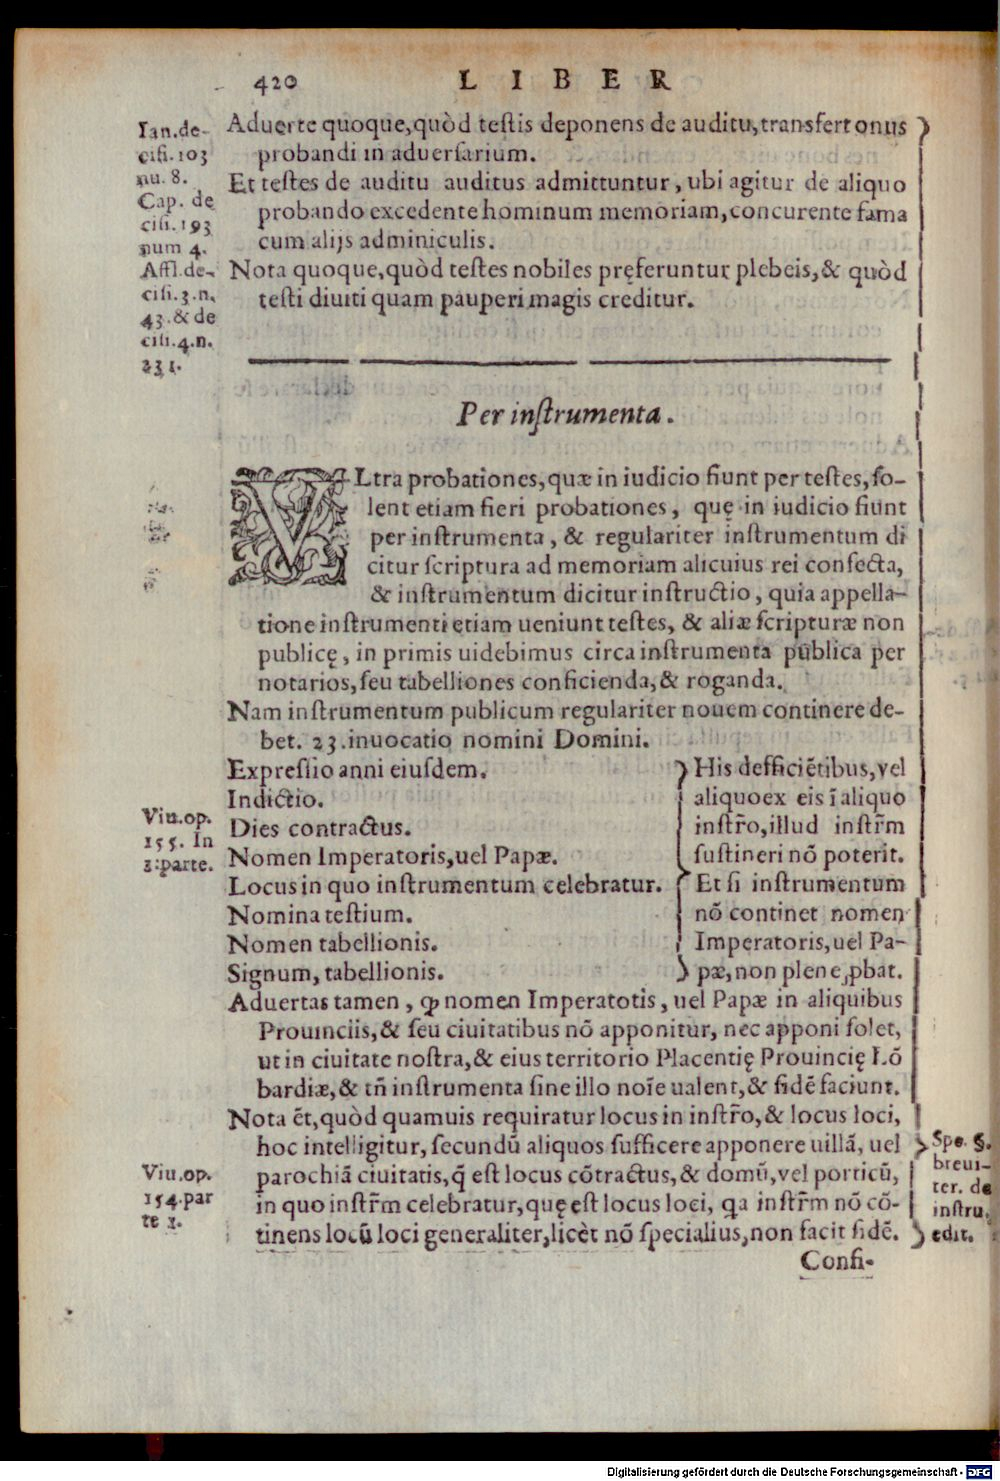 420 LIBER
Aduerte quoque, quòd testis deponens de auditu, transfert onus
probandi in aduersarium.
Et testes de auditu auditus admittuntur, ubi agitur de aliquo
probando excedente hominum memoriam, concurente fama
cum alijs adminiculis.
Nota quoque, quòd testes nobiles pręferuntur plebeis, & quòd
testi diuiti quam pauperi magis creditur.
Ian. de-
cisi. 103
nu. 8.
Cap. de
cisi. 193
num 4.
Affl. de-
cisi. 3. n.
43. & de
cisi. 4. n.
231.
Per instrumenta.
VLtra probationes, quæ in iudicio fiunt per testes, so-
lent etiam fieri probationes, quę in iudicio fiunt
per instrumenta, & regulariter instrumentum di
citur scriptura ad memoriam alicuius rei confecta,
& instrumentum dicitur instructio, quia appella-
tione instrumenti etiam ueniunt testes, & aliæ scripturæ non
publicę, in primis uidebimus circa instrumenta publica per
notarios, seu tabelliones conficienda, & roganda.
Nam instrumentum publicum regulariter nouem continere de-
bet. 23. inuocatio nomini Domini.
Expressio anni eiusdem.
Indictio.
Dies contractus.
Nomen Imperatoris, uel Papæ.
Locus in quo instrumentum celebratur.
Nomina testium.
Nomen tabellionis.
Signum, tabellionis.
His defficiētibus, vel
aliquo ex eis ī aliquo
instr̄o, illud instr̄m
sustineri nō poterit.
Et si instrumentum
nō continet nomen
Imperatoris, uel Pa-
pæ, non plene ꝓbat.
Viu. op.
155. In
2. parte.
Aduertas tamen, ꝙ nomen Imperatotis, uel Papæ in aliquibus
Prouinciis, & seu ciuitatibus nō apponitur, nec apponi solet,
ut in ciuitate nostra, & eius territorio Placentię Prouincię Lō
bardiæ, & tn̄ instrumenta sine illo noīe ualent, & fidē faciunt.
Nota ēt, quòd quamuis requiratur locus in instr̄o, & locus loci,
hoc intelligitur, secundū aliquos sufficere apponere uillā, uel
parochiā ciuitatis, q̄ est locus cōtractus, & domū, vel porticū,
in quo instr̄m celebratur, quę est locus loci, qa instr̄m nō cō-
tinens locū loci generaliter, licèt nō specialius, non facit fidē.
Viu. op.
154. par
te 1.
Spe. §.
breui-
ter. de
instru.
edit.
Confi-
Digitalisierung gefördert durch die Deutsche Forschungsgemeinschaft - DFG